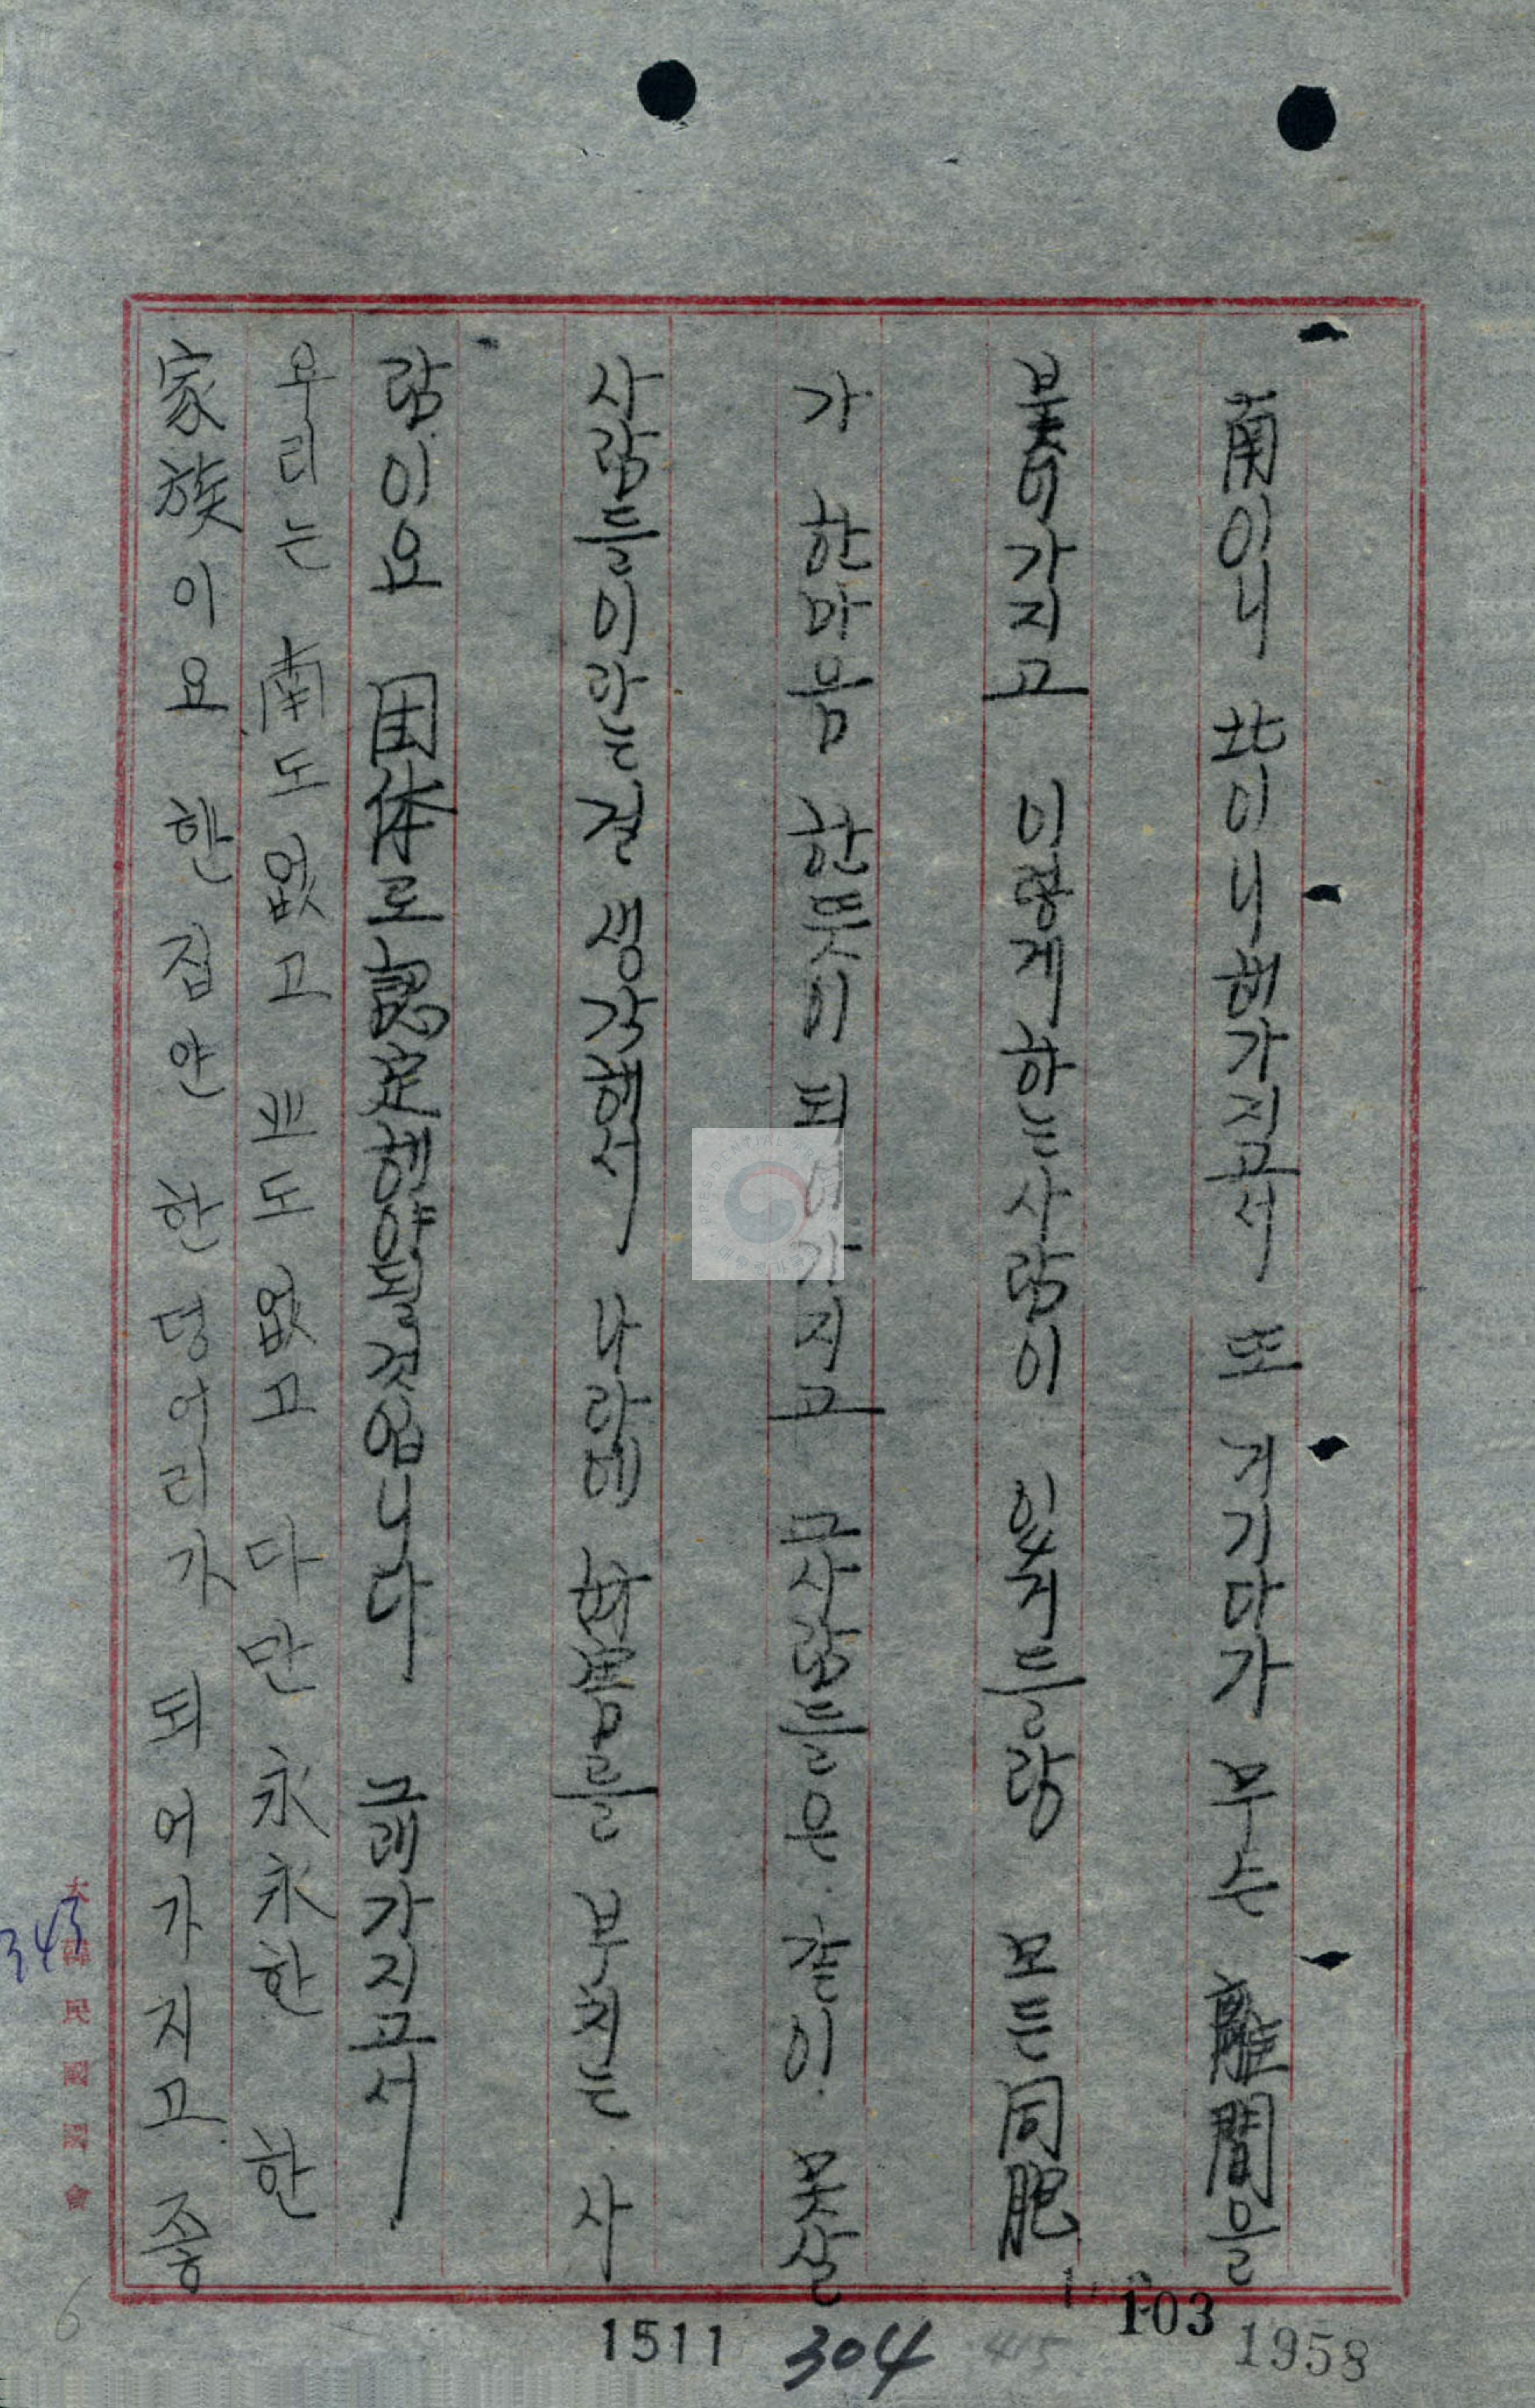 南아니 北이니 해가지고서 또 거기다가 무슨 離間을
붙이가지고 이렇게 하는 사람이 있거들랑 모든 同胞
가 한마음 한뜻이 되어가지고 그사람들은 같이 못살
사람들이라는 걸 생각해서 나라에 妨害를 부치는 사
람이요 団体로 認定해야 될 것입니다 그래가지고서
우리는 南도 없고 北도 없고 다만 永永한 한
家族이요 한 집안 한 덩어리가 되어가지고 좋
大韓民國國會
343
6
1511
304
415
103
1958